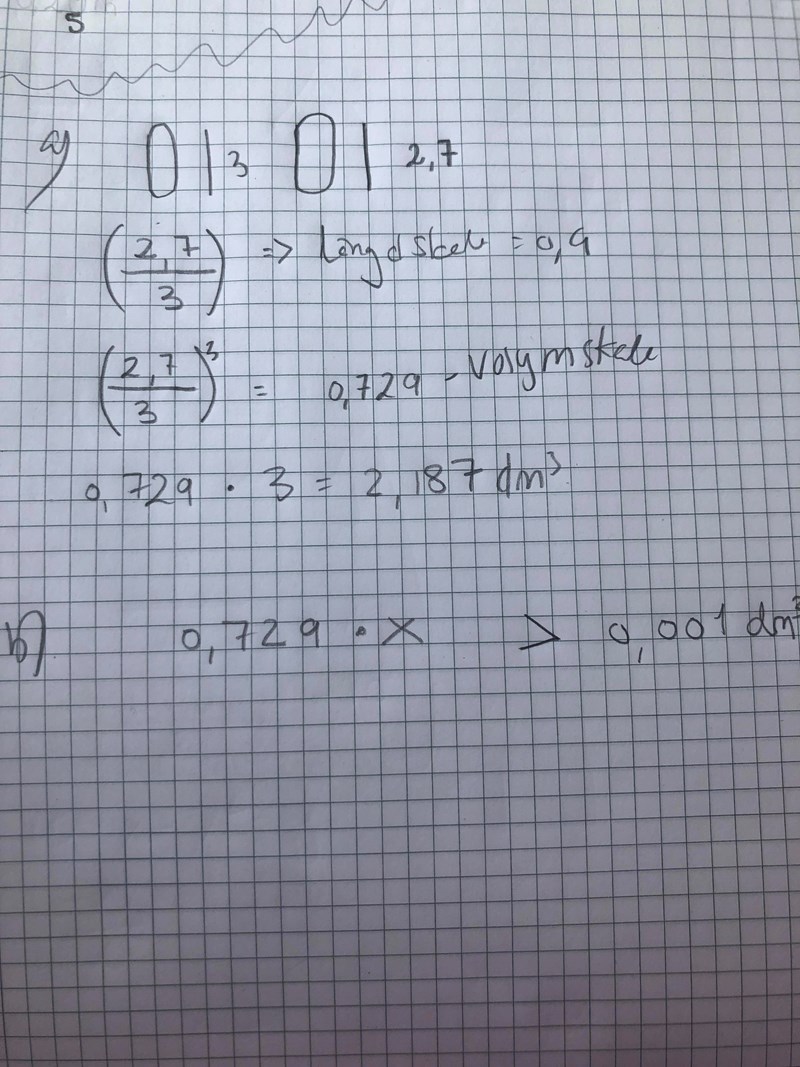 5
a) 3 2,7
(2,7/3) => Längdskala = 0,9
(2,7/3)³ = 0,729 - Volymskala
0,729 · 3 = 2,187 dm³
b) 0,729 · x > 0,001 dm³